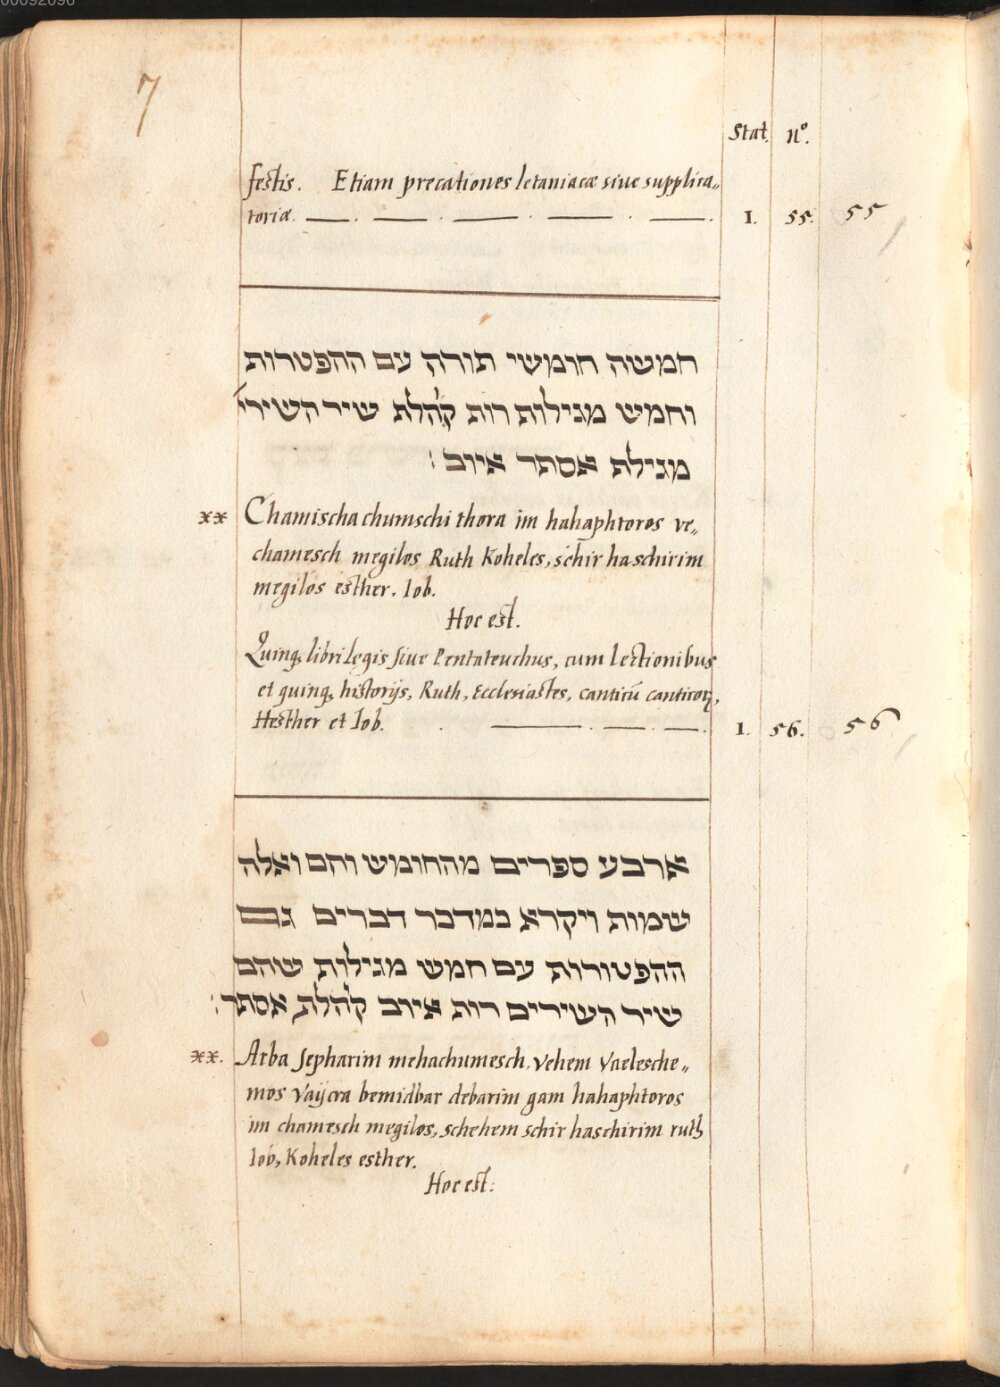 00092096
7
Stat. nº.
festis. Etiam precationes letaniacæ siue supplica„
toriæ. — . — . — . — . — . I. 55. 55
חמשה חומשי תורה עם ההפטרות
וחמש מגילות רות קהלת שיר השירי׳
מגילת אסתר איוב :
xx Chamischa chumschi thora im hahaphtoros ve„
chamesch megilos Ruth Koheles, schir haschirim
megilos esther. Iob.
Hoc est.
Quinq, libri Legis siue Pentateuchus, cum lectionibus
et quinq, historijs, Ruth, Ecclesiastes, canticū canticorꝝ,
Hesther et Iob. — . — . — . I. 56. 56
ארבע ספרים מהחומש והם ואלה
שמות ויקרא במדבר דברים גם
ההפטורות עם חמש מגילות שהם
שיר השירים רות איוב קהלת אסתר :
xx. Arba sepharim mehachumesch. vehem Vaelesche„
mos Vaijcra bemidbar debarim gam hahaphtoros
im chamesch megilos, schehem schir haschirim ruth
Iob, Koheles esther.
Hoc est: